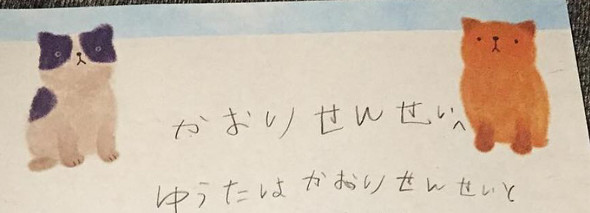 かおりせんせいへ
ゆうたはかおりせんせいと